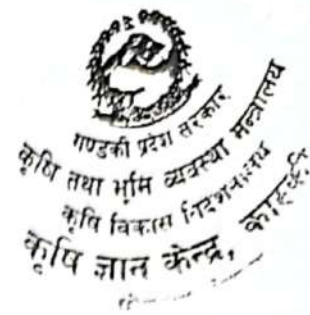 गण्डकी प्रदेश सरकार
कृषि तथा भूमि व्यवस्था मन्त्रालय
कृषि विकास निर्देशनालय
कृषि ज्ञान केन्द्र,